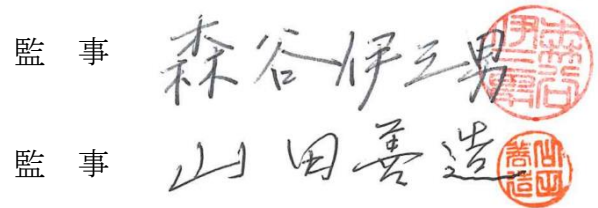 監 事 森谷伊三男
監 事 山田善造